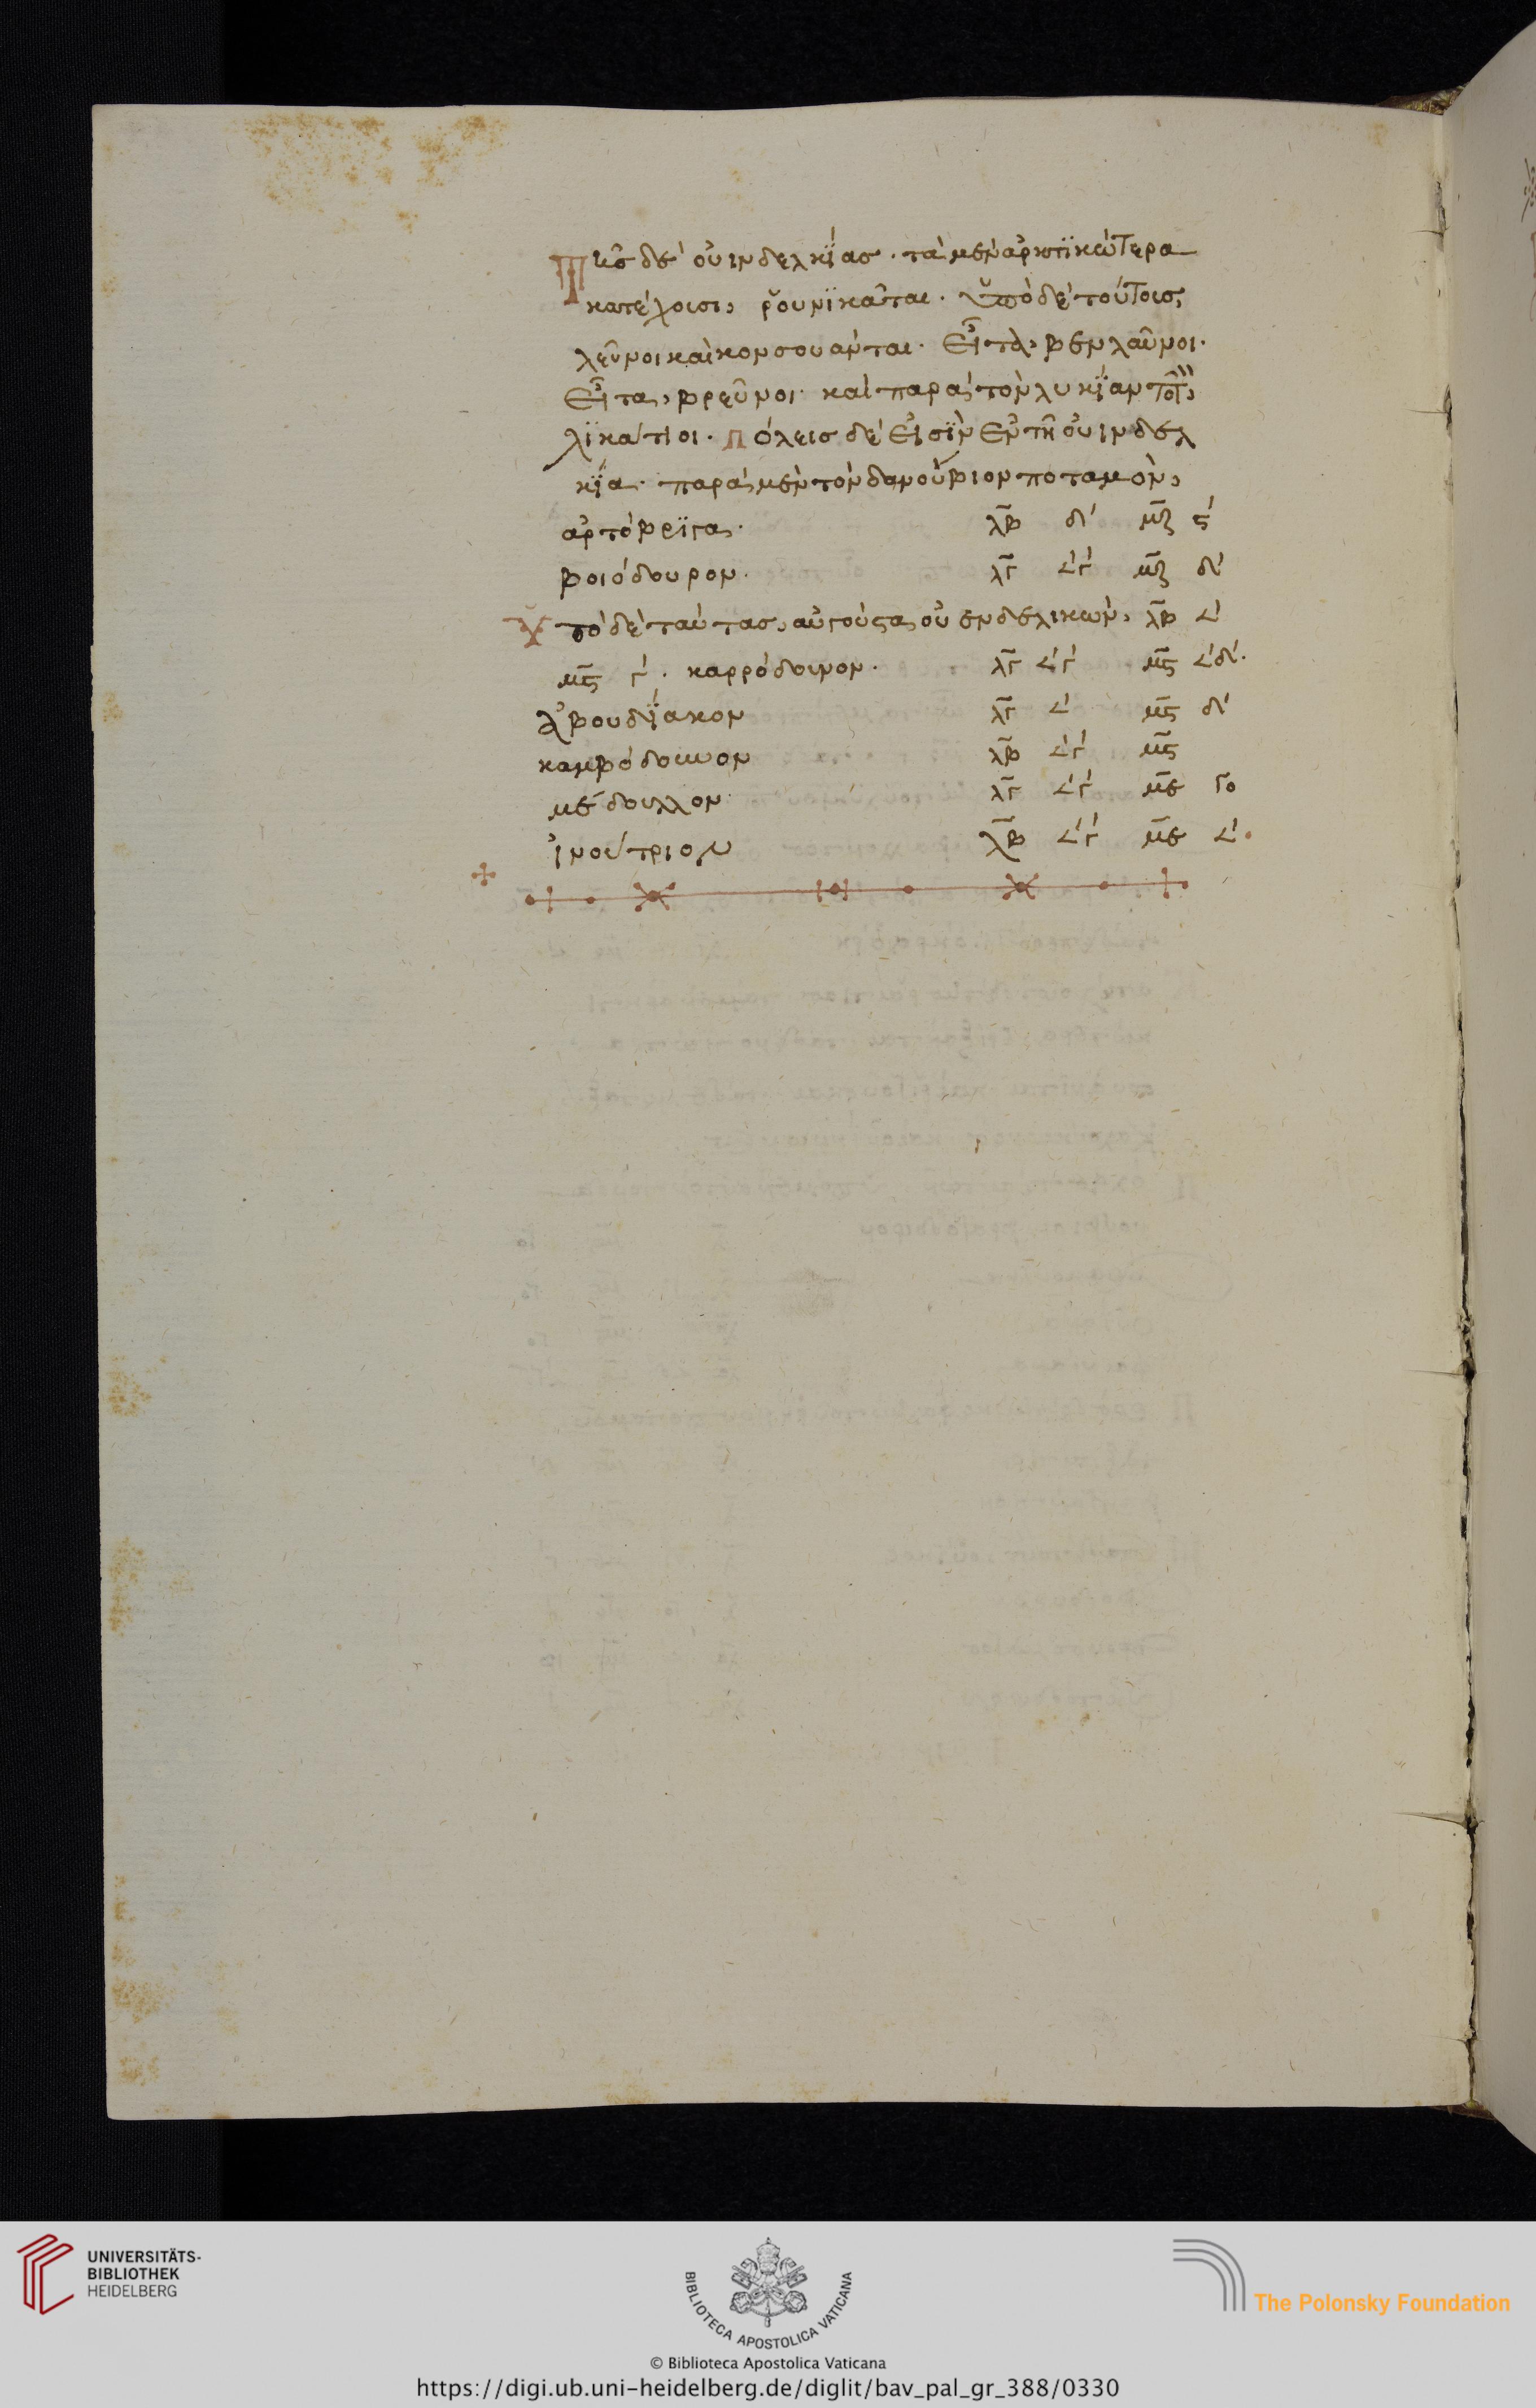 Τῆς δὲ οὐινδελκΐας · τὰ μὲν ἀρκτϊκώτερα
κατέχουσι, ῥουνϊκᾶται · ὑπὸ δὲ τούτοις,
λεῦνοι καὶ κονσουάνται · εἶτα, βενλαῦνοι ·
εἶτα, βρεῦνοι · καὶ παρὰ τὸν λυκΐαν
λϊκάτιοι · πόλεις δέ εἰσϊν ἐν τῆ οὐινδελ
κΐα · παρὰ μὲν τὸν δανούβιον ποταμὸν,
ἀρτόβρϊγα · λβ δʹ μζ ςʹ
βοιόδουρον · λγ ∠ʹγʹ μζ δʹ
ὑπὸ δὲ ταύτας, αὐγούστα, οὐενδελικῶν, λβ ∠ʹ
μς γʹ · καρρόδουνον · λγ ∠ʹγʹ μς ∠ʹδʹ ·
ἀβουδΐακον λγ ∠ʹ μς δʹ
καμβόδουνον λβ ∠ʹγʹ μς
μέδουλλον · λγ ∠ʹγʹ με γο
ἰνούτριον λβ ∠ʹγʹ με ∠ʹ ·
UNIVERSITÄTS-
BIBLIOTHEK
HEIDELBERG
BIBLIOTECA APOSTOLICA VATICANA
The Polonsky Foundation
© Biblioteca Apostolica Vaticana
https://digi.ub.uni-heidelberg.de/diglit/bav_pal_gr_388/0330